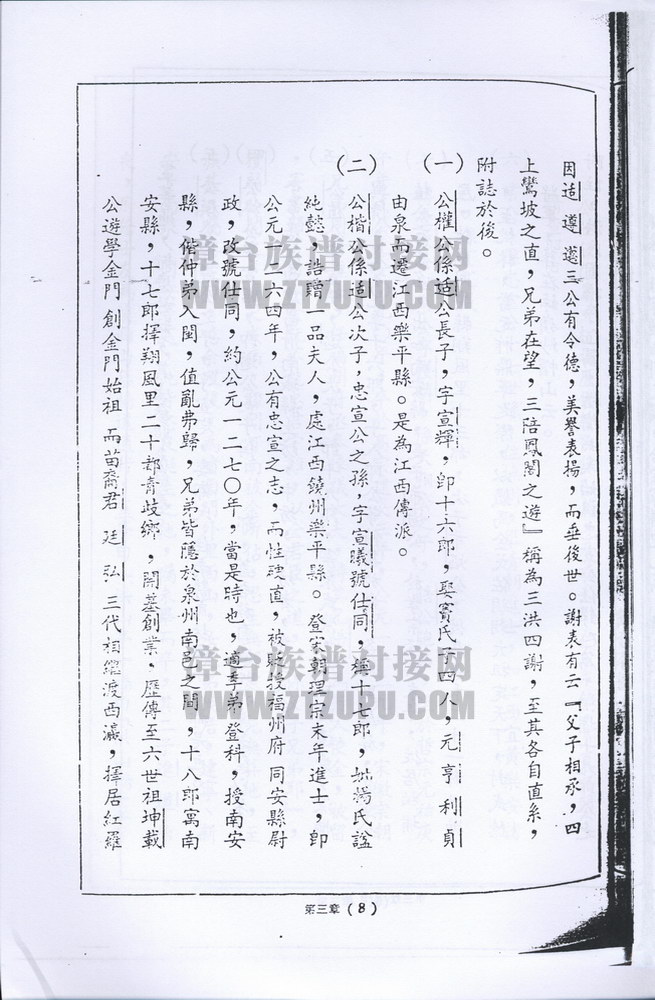 因适 遵 邁三公有令德，美譽表揚，而垂後世。謝表有云『父子相承，四
上鑾坡之直，兄弟在望，三陪鳳閣之遊』稱為三洪四謝，至其各自直系，
附誌於後。
（一）公權公係适公長子，字宣輝，卽十六郎，娶竇氏子四人，元 亨 利 貞
由泉而遷江西樂平縣。是為江西傳派。
（二）公楷公係适公次子，忠宣公之孫，字宣曦號仕同，稱十七郎，妣楊氏諡
純懿，誥贈一品夫人，處江西饒州樂平縣。登宋朝理宗末年進士，卽
公元一二六四年，公有忠宣之志，而性硬直，被貶授福州府 同安縣尉
政，改號仕同，約公元一二七〇年，當是時也，適季弟登科，授南安
縣，偕仲弟入閩，值亂弗歸，兄弟皆隱於泉州南邑之間，十八郎寓南
安縣，十七郎擇翔風里二十都青歧鄉，開基創業．歷傳至六世祖坤載
公遊學金門創金門始祖 而苗裔君 廷 弘 三代相繼渡西瀛，擇居紅羅
第三章（8）
章台族谱对接网
WWW.ZTZUPU.COM
章台族谱对接网
WWW.ZTZUPU.COM